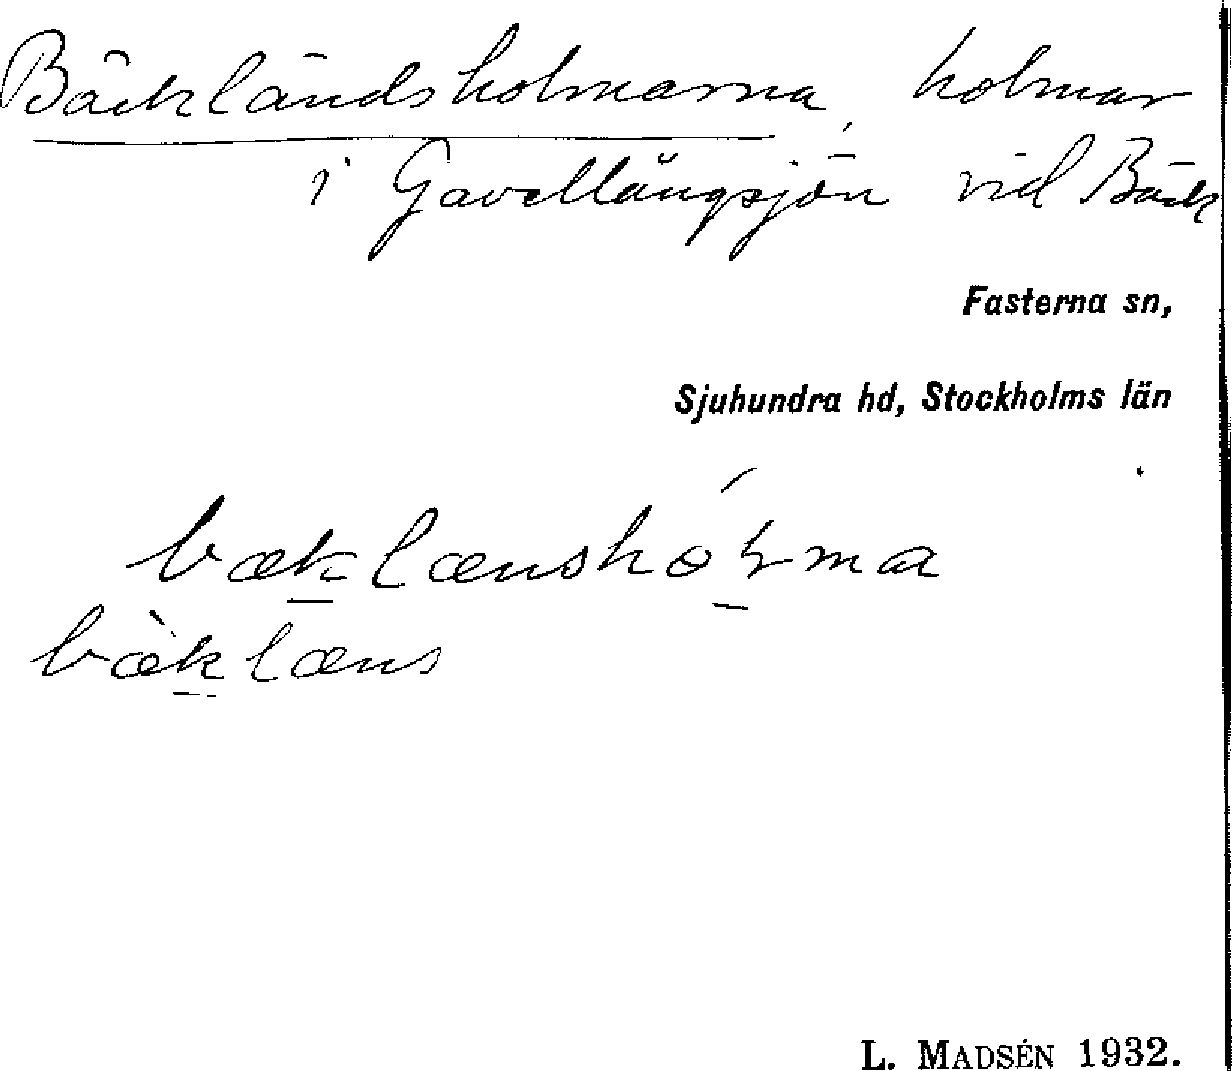 Bäckländsholmarna, holmar
i Gavellängsjön vid Bäck
Fasterna sn,
Sjuhundra hd, Stockholms län
bæklænshóɫma
bæ̀klæns
L. MADSÉN 1932.